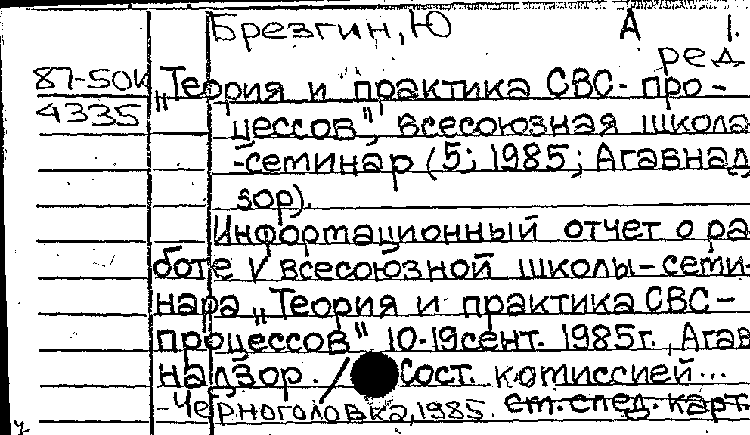 Брезгин, Ю А 1.
ред
87-50к „Теория и практика СВС-про-
4335 цессов", всесоюзная школа
-семинар (5; 1985; Агавнад
зор).
Информационный отчет о ра
боте V всесоюзной школы-семи-
нара „Теория и практика СВС-
процессов" 10-19 сент. 1985г., Агав
надзор. / Сост. комиссией...
-Черноголовка, 1985. см. след. карт.